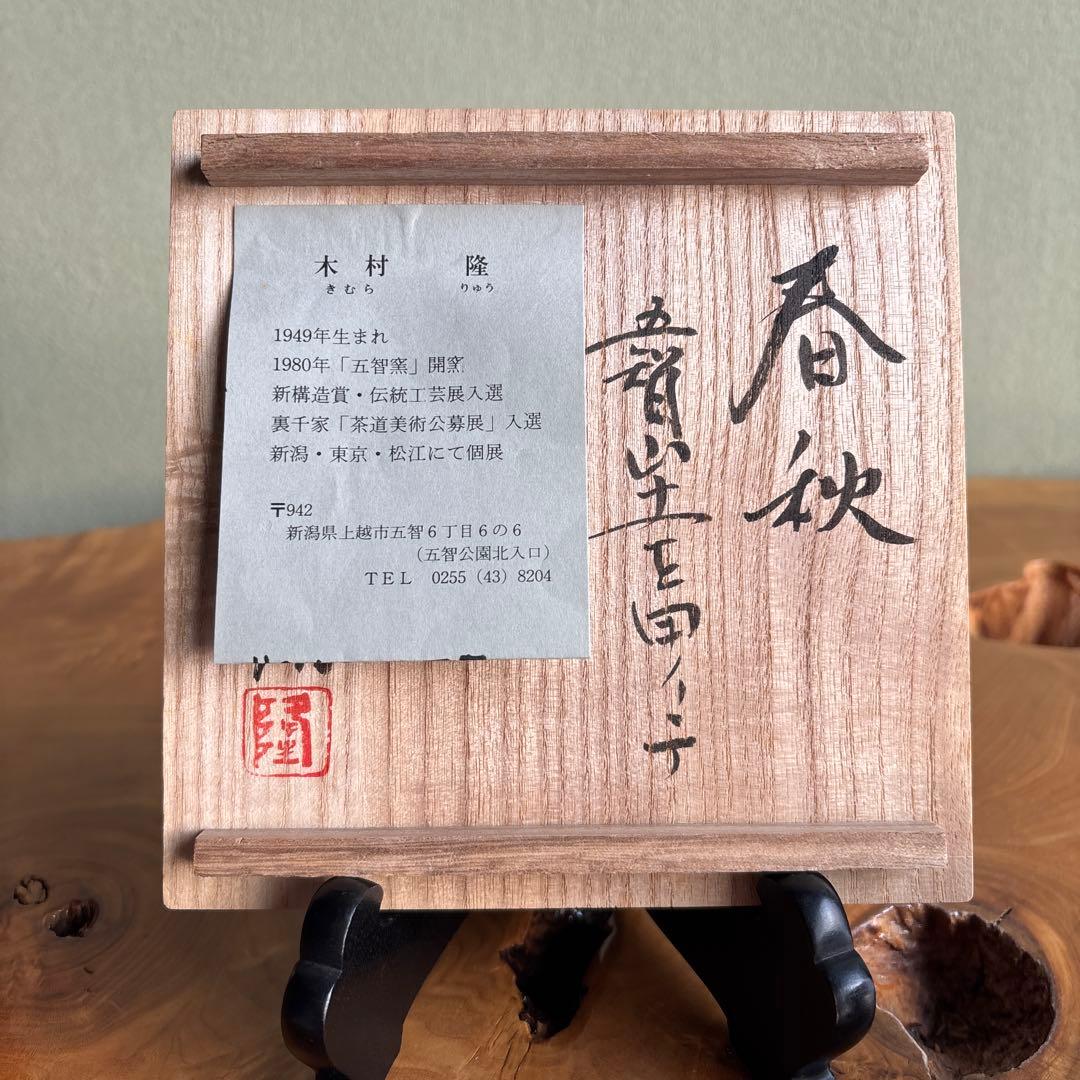 春秋
五智山土を田イテ
木村 隆
きむら りゅう
1949年生まれ
1980年「五智窯」開窯
新構造賞・伝統工芸展入選
裏千家「茶道美術公募展」入選
新潟・東京・松江にて個展
〒942
新潟県上越市五智6丁目6の6
(五智公園北入口)
TEL 0255(43)8204
隆